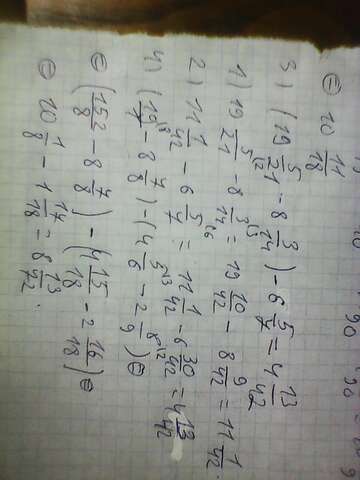 ⊜ 10 11/18
3) (19 5/21 - 8 3/14) - 6 5/7 = 4 13/42
1) 19 5/21 - 8 3/14 = 19 10/42 - 8 9/42 = 11 1/42
2) 11 1/42 - 6 5/7 = 11 1/42 - 6 30/42 = 4 13/42
4) (19 - 8 7/8) - (4 5/6 - 2 8/9) ⊜
⊜ (152/8 - 8 7/8) - (4 15/18 - 2 16/18) ⊜
⊜ 10 1/8 - 1 17/18 = 8 13/72.